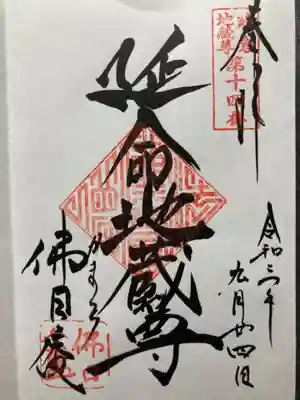 奉拝
第十四番
地蔵尊
令和三年
九月廿四日
延命地蔵尊
かまくら
佛日庵